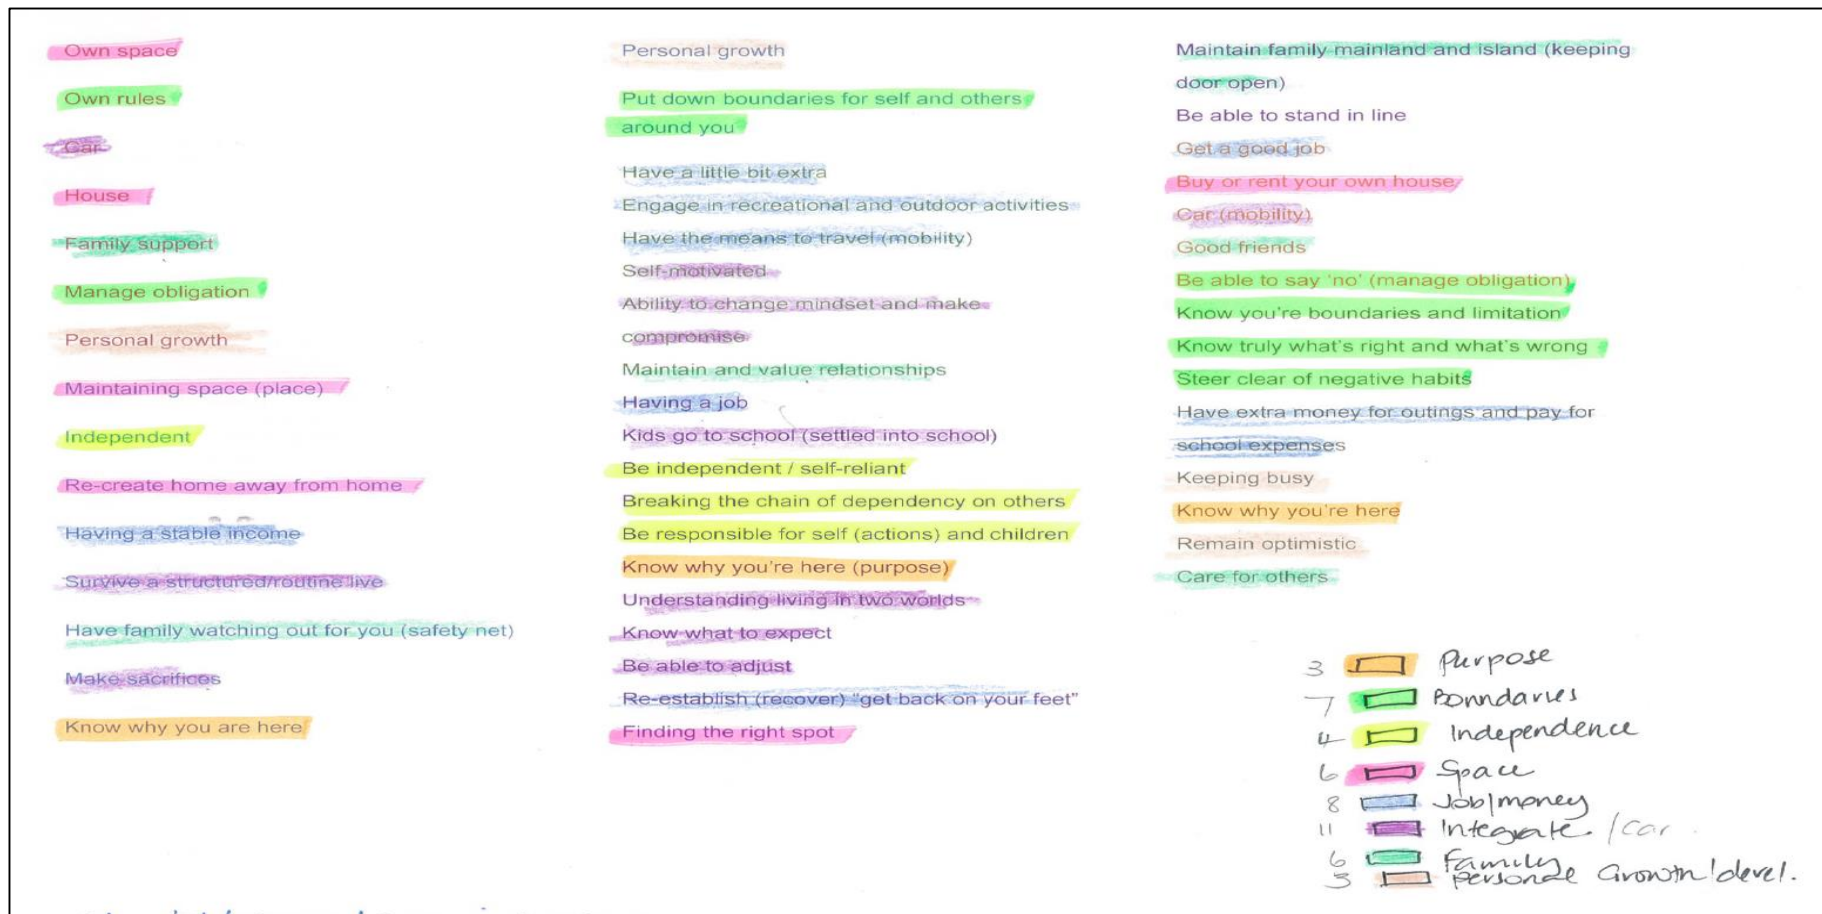 Own space
Own rules
Car
House
Family support
Manage obligation
Personal growth
Maintaining space (place)
Independent
Re-create home away from home
Having a stable income
Survive a structured/routine live
Have family watching out for you (safety net)
Make sacrifices
Know why you are here
Personal growth
Put down boundaries for self and others
around you
Have a little bit extra
Engage in recreational and outdoor activities
Have the means to travel (mobility)
Self-motivated
Ability to change mindset and make
compromise
Maintain and value relationships
Having a job
Kids go to school (settled into school)
Be independent / self-reliant
Breaking the chain of dependency on others
Be responsible for self (actions) and children
Know why you're here (purpose)
Understanding living in two worlds
Know what to expect
Be able to adjust
Re-establish (recover) "get back on your feet"
Finding the right spot
Maintain family mainland and island (keeping
door open)
Be able to stand in line
Get a good job
Buy or rent your own house
Car (mobility)
Good friends
Be able to say 'no' (manage obligation)
Know you're boundaries and limitation
Know truly what's right and what's wrong
Steer clear of negative habits
Have extra money for outings and pay for
school expenses
Keeping busy
Know why you're here
Remain optimistic
Care for others
3 Purpose
7 Boundaries
4 Independence
6 Space
8 Job/money
11 Integrate /Car
6 Family
5 personal Growth/devel.